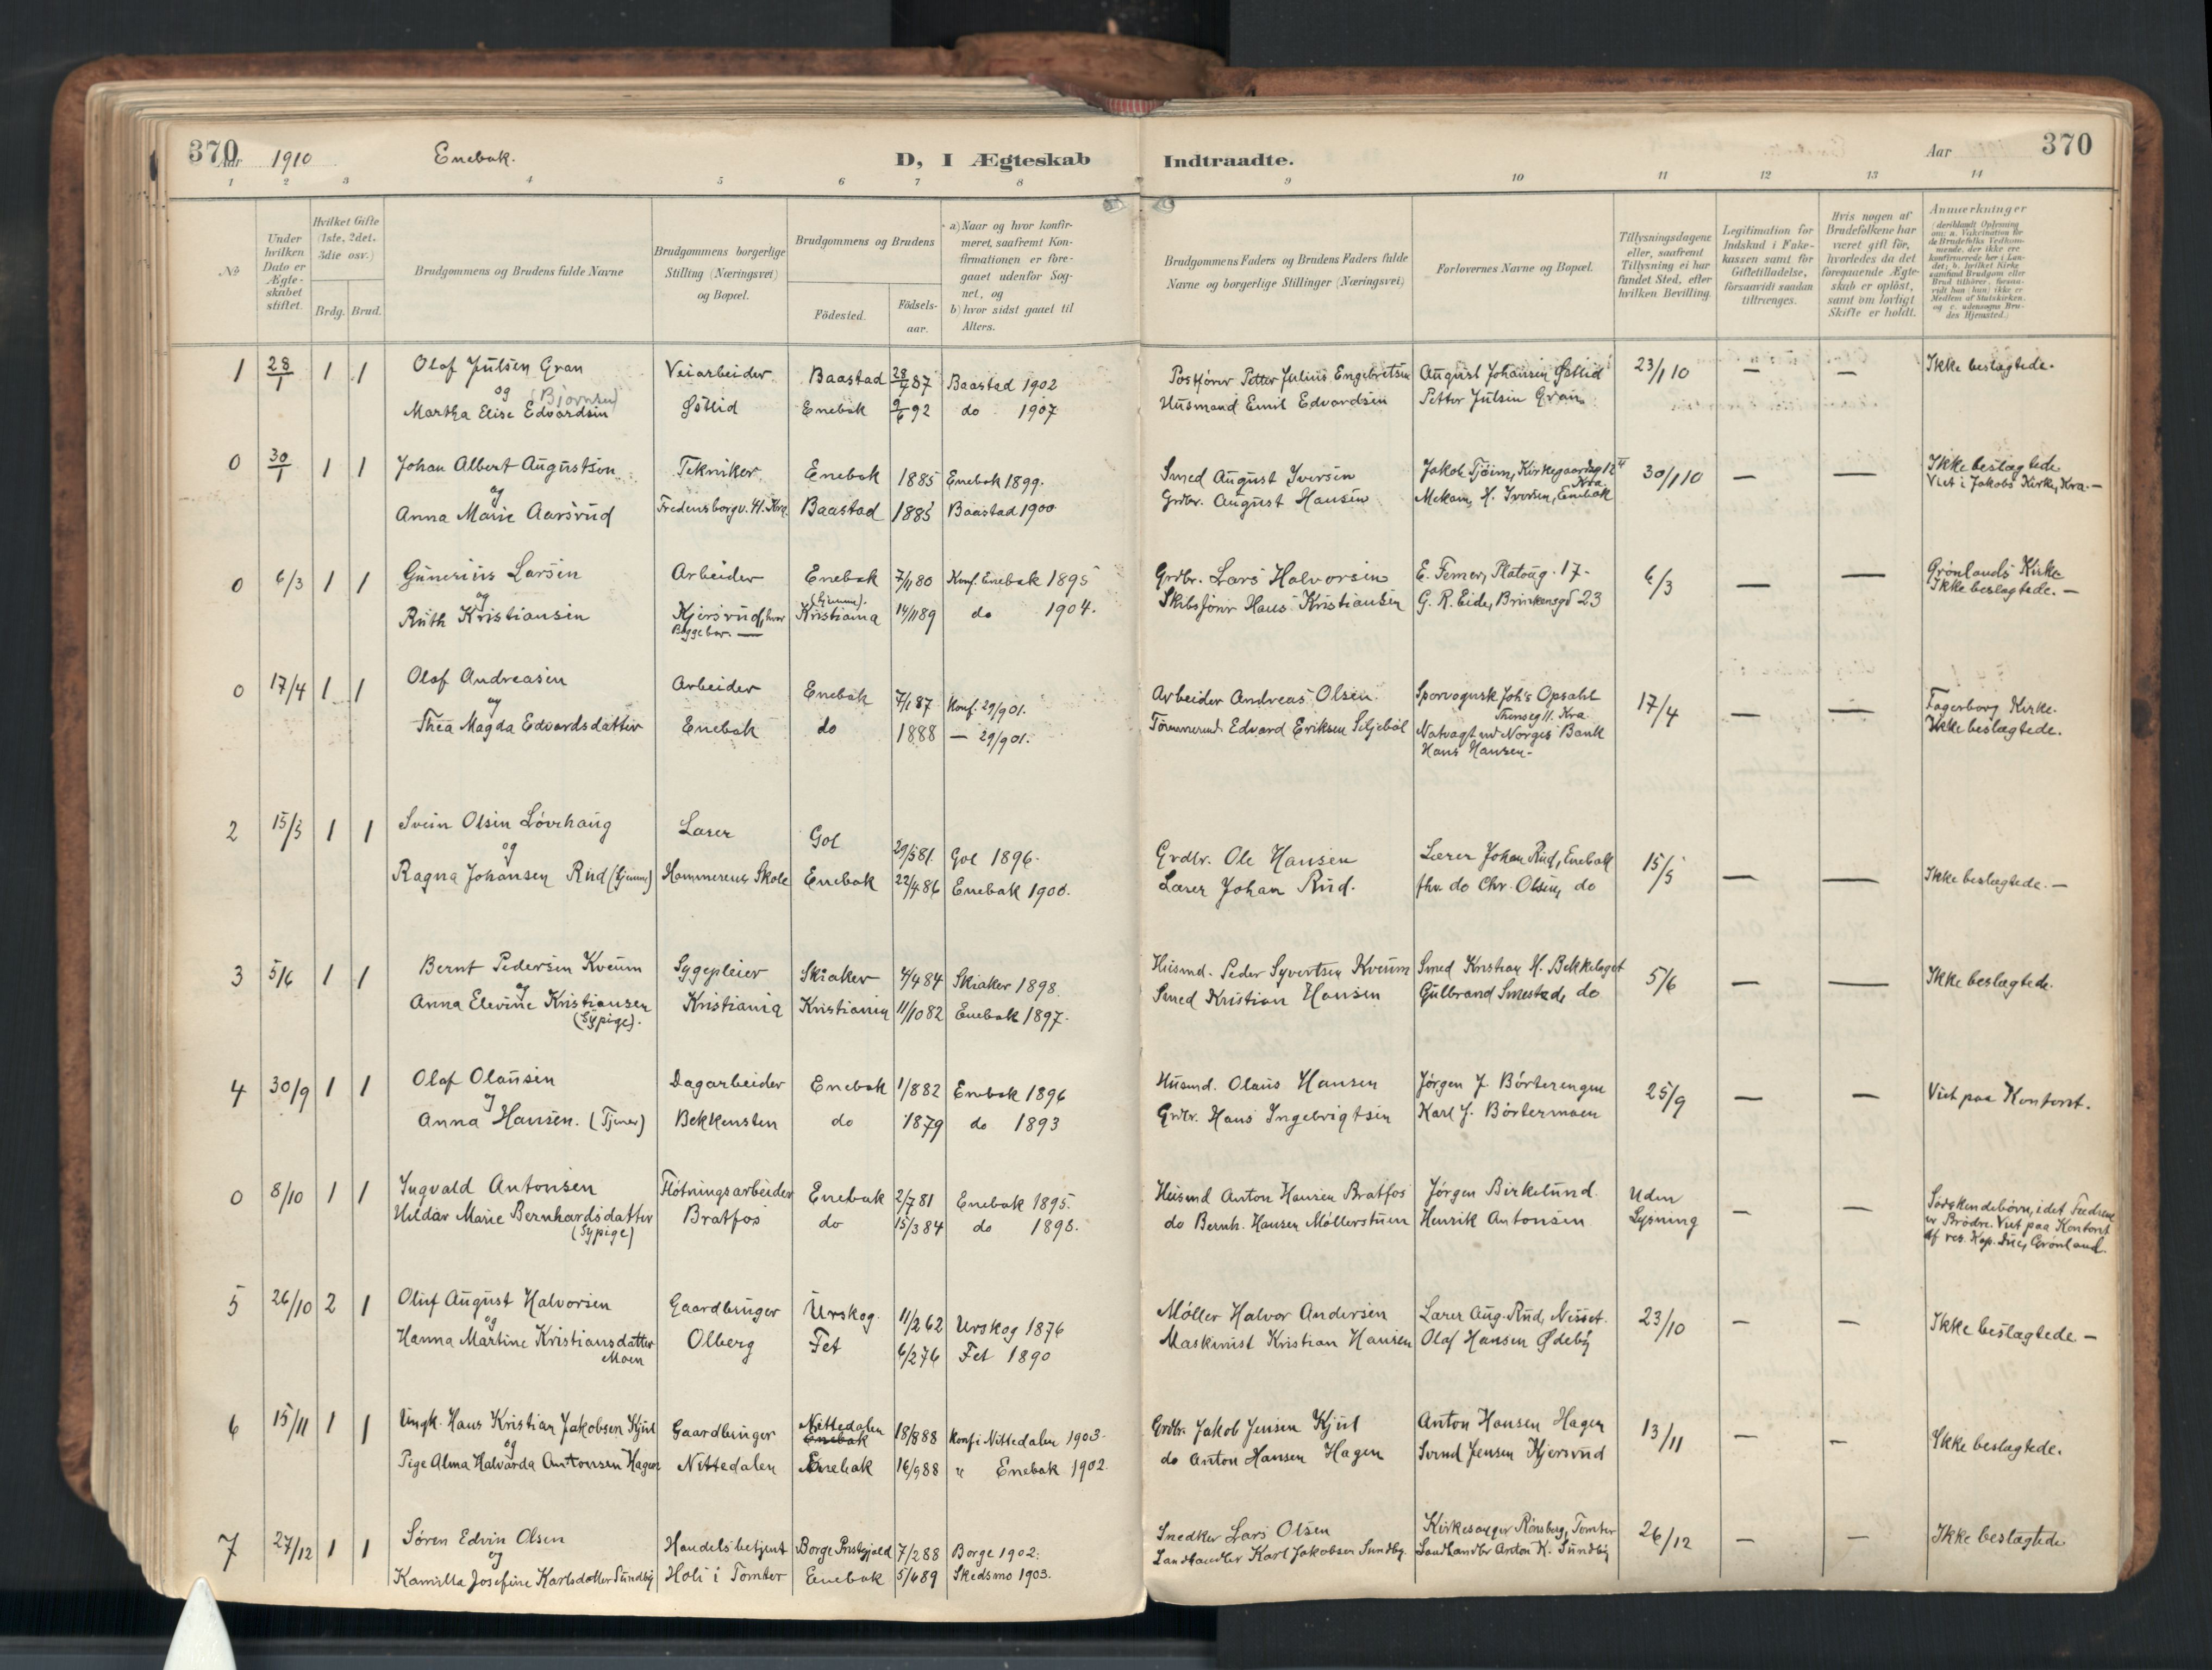 370
Aar 1910
Enebak.
D, I Ægteskab
Indtraadte.
Aar
370
1 2 3 4 5 6 7 8 9 10 11 12 13 14
No
Under hvilken Dato er Ægteskabet stiftet.
Hvilket Gifte (1ste, 2det, 3die osv.)
Brdg. Brud.
Brudgommens og Brudens fulde Navne
Brudgommens borgerlige Stilling (Næringsvei) og Bopæl.
Brudgommens og Brudens
Födested.
Födselsaar.
a) Naar og hvor konfirmeret, saafremt Konfirmationen er foregaaet udenför Sognet, og
b) hvor sidst gaaet til Alters.
Brudgommens Faders og Brudens Faders fulde Navne og borgerlige Stillinger (Næringsvei)
Forlovernes Navne og Bopæl.
Tillysningsdagene eller, saafremt Tillysning ei har fundet Sted, efter hvilken Bevilling.
Legitimation for Indskud i Enkekassen samt for Giftetilladelse, forsaavidt saadan tiltrænges.
Hvis nogen af Brudefolkene har været gift för, hvorledes da det foregaaende Ægteskab er oplöst, samt om lovligt Skifte er holdt.
Anmærkninger
1 28/1 1 1 Olaf Julsen Gran Veiarbeider Baastad 28/7 87 Baastad 1902 Postfører Petter Julius Engebretsen August Johansen Østlid 23/1 10 — — Ikke beslægtede.
og (Bjørnsen)
Martha Elise Edvardsen Østlid Enebak 2/6 92 do 1907 Husmand Emil Edvardsen Petter Julsen Gran
0 30/1 1 1 Johan Albert Augustson Tekniker Enebak 1885 Enebak 1899. Smed August Iversen Jakob Tjöim, Kirkegaardsg 12 II Kra. 30/1 10 — — Ikke beslægtede
og
Anna Marie Aarsrud Fredensborgv. 41. Kra. Baastad 1885 Baastad 1900 Grdbr. August Hansen Mekan. H. Iversen, Enebak Viet i Jakobs Kirke, Kra. —
0 6/3 1 1 Gunerius Larsen Arbeider Enebak 7/11 80 Konf. Enebak 1895 Grdbr. Lars Halvorsen E. Ferner, Platoug. 17- 6/3 — — Grønlands Kirke
og
Ruth Kristiansen Kjersrud, hvor Begge bor. — (hjemme). Kristiania 14/11 89 do 1904. Skibsfører Hans Kristiansen G. R. Eide, Brinkensgd 23 Ikke beslægtede. —
0 17/4 1 1 Olaf Andreasen Arbeider Enebak 7/1 87 Konf. 29/9 01. Arbeider Andreas Olsen. Sporvognsk Joh's Opsahl 17/4 — — Fagerborg Kirke.
og
Thea Magda Edvardsdatter Enebak do 1888 — 29/9 01. Edvard Eriksen Natvagt ved Norges Bank Hans Hansen- Ikke beslægtede.
2 15/5 1 1 Svein Olsen Løvehaug Lærer Gol 29/5 81 Gol 1896. Grdbr. Ole Hansen Lærer Johan Rud, Enebak 15/5 — — Ikke beslægtede. —
og
Ragna Johansen Rud (hjemme) Hammerens Skole Enebak 22/4 86 Enebak 1900. Lærer Johan Rud. fhv do Chr. Olsen, do
3 5/6 1 1 Bernt Pedersen Kveum Sygepleier Skiaker 4/4 84 Skiaker 1898. Husmd. Peder Syvertsen Kveum Smed Kristian H. Bekkelaget 5/6 — — Ikke beslægtede.
og
Anna Elevine Kristiansen (Sypige). Kristiania Kristiania 11/10 82 Enebak 1897. Smed Kristian Hansen Gulbrand Smestad, do
4 30/9 1 1 Olaf Olausen Dagarbeider Enebak 1/8 82 Enebak 1896 Husmd. Olaus Hansen Jørgen J. Børterengen 25/9 — — Viet paa Kontoret.
og
Anna Hansen. (Tjener) Bekkensten do 1879 do 1893 Grdbr. Hans Ingebrigtsen Karl J. Børtermoen
0 8/10 1 1 Ingvald Antonsen Fløtningsarbeider Enebak 2/7 81 Enebak 1895. Husmd Anton Hansen Bratfos Jørgen Birkelund Uden Lysning — — Søskendebørn, idet Fædrene er Brödre. Viet paa Kontoret af res. Kap. Due, Grønland.
Hildar Marie Bernhardsdatter (Sypige) Bratfos do 15/3 84 do 1898. do Bernh. Hansen Møllerstuen Henrik Antonsen
5 26/10 2 1 Oluf August Halvorsen Gaardbruger Urskog. 11/2 62 Urskog 1876 Møller Halvor Andersen Lærer Aug. Rud, Nesset. 23/10 — — Ikke beslægtede —
og
Hanna Martine Kristiansdatter Moen Olberg Fet 6/2 76 Fet 1890 Maskinist Kristian Hansen Olaf Hansen Ødeby
6 15/11 1 1 Ungk. Hans Kristian Jakobsen Kjul Gaardbruger Nittedalen Enebak 18/8 88 Konf. Nittedalen 1903. Grdbr. Jakob Jensen Kjul Anton Hansen Hagen 13/11 — — Ikke beslægtede.
og
Pige Alma Halvarda Antonsen Hagen Nittedalen Enebak 16/9 88 " Enebak 1902. do Anton Hansen Hagen Svend Jensen Kjersrud
7 27/12 1 1 Søren Edvin Olsen Handelsbetjent Borge Prstgjeld 7/2 88 Borge 1902. Snedker Lars Olsen Kirkesanger Rønsberg, Tomter 26/12 — — Ikke beslægtede
og
Kamilla Josefine Karlsdatter Sundby Holi i Tomter Enebak 5/4 89 Skedsmo 1903. Landhandler Karl Jakobsen Sundby. Landhandler Anton K. Sundby